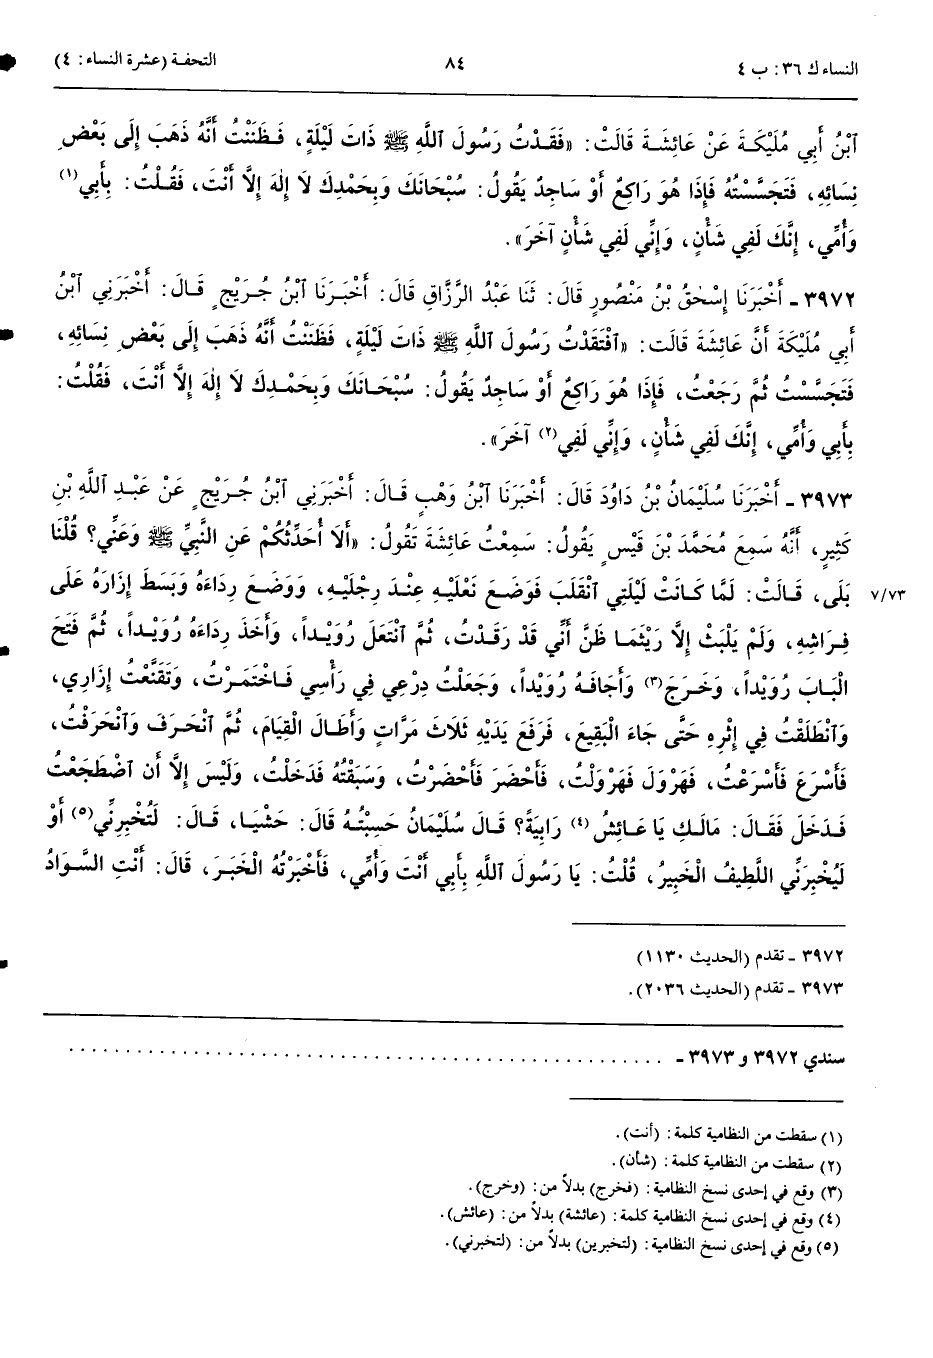 النساء ك ٣٦: ب ٤ ٨٤ التحفة (عشرة النساء: ٤)
ٱبْنُ أَبِي مُلَيْكَةَ عَنْ عَائِشَةَ قَالَتْ: «فَقَدْتُ رَسُولَ ٱللَّهِ ﷺ ذَاتَ لَيْلَةٍ، فَظَنَنْتُ أَنَّهُ ذَهَبَ إِلَى بَعْضِ
نِسَائِهِ، فَتَجَسَّسْتُهُ فَإِذَا هُوَ رَاكِعٌ أَوْ سَاجِدٌ يَقُولُ: سُبْحَانَكَ وَبِحَمْدِكَ لَا إِلٰهَ إِلَّا أَنْتَ، فَقُلْتُ: بِأَبِي(١)
وَأُمِّي، إِنَّكَ لَفِي شَأْنٍ، وَإِنِّي لَفِي شَأْنٍ آخَرَ».
٣٩٧٢ - أَخْبَرَنَا إِسْحٰقُ بْنُ مَنْصُورٍ قَالَ: ثَنَا عَبْدُ الرَّزَّاقِ قَالَ: أَخْبَرَنَا ٱبْنُ جُرَيْجٍ قَالَ: أَخْبَرَنِي ٱبْنُ
أَبِي مُلَيْكَةَ أَنَّ عَائِشَةَ قَالَت: «ٱفْتَقَدْتُ رَسُولَ ٱللَّهِ ﷺ ذَاتَ لَيْلَةٍ، فَظَنَنْتُ أَنَّهُ ذَهَبَ إِلَى بَعْضِ نِسَائِهِ،
فَتَجَسَّسْتُ ثُمَّ رَجَعْتُ، فَإِذَا هُوَ رَاكِعٌ أَوْ سَاجِدٌ يَقُولُ: سُبْحَانَكَ وَبِحَمْدِكَ لَا إِلٰهَ إِلَّا أَنْتَ، فَقُلْتُ:
بِأَبِي وَأُمِّي، إِنَّكَ لَفِي شَأْنٍ، وَإِنِّي لَفِي(٢) آخَرَ».
٣٩٧٣ - أَخْبَرَنَا سُلَيْمَانُ بْنُ دَاوُدَ قَالَ: أَخْبَرَنَا ٱبْنُ وَهْبٍ قَالَ: أَخْبَرَنِي ٱبْنُ جُرَيْجٍ عَنْ عَبْدِ اللَّهِ بْنِ
كَثِيرٍ، أَنَّهُ سَمِعَ مُحَمَّدَ بْنَ قَيْسٍ يَقُولُ: سَمِعْتُ عَائِشَةَ تَقُولُ: «أَلَا أُحَدِّثُكُمْ عَنِ النَّبِيِّ ﷺ وَعَنِّي؟ قُلْنَا
٧/٧٣ بَلَى، قَالَتْ: لَمَّا كَانَتْ لَيْلَتِي ٱنْقَلَبَ فَوَضَعَ نَعْلَيْهِ عِنْدَ رِجْلَيْهِ، وَوَضَعَ رِدَاءَهُ وَبَسَطَ إِزَارَهُ عَلَى
فِرَاشِهِ، وَلَمْ يَلْبَثْ إِلَّا رَيْثَمَا ظَنَّ أَنِّي قَدْ رَقَدْتُ، ثُمَّ ٱنْتَعَلَ رُوَيْداً، وَأَخَذَ رِدَاءَهُ رُوَيْداً، ثُمَّ فَتَحَ
الْبَابَ رُوَيْداً، وَخَرَجَ(٣) وَأَجَافَهُ رُوَيْداً، وَجَعَلْتُ دِرْعِي فِي رَأْسِي فَاخْتَمَرْتُ، وَتَقَنَّعْتُ إِزَارِي،
وَٱنْطَلَقْتُ فِي إِثْرِهِ حَتَّى جَاءَ الْبَقِيعَ، فَرَفَعَ يَدَيْهِ ثَلَاثَ مَرَّاتٍ وَأَطَالَ الْقِيَامَ، ثُمَّ ٱنْحَرَفَ وَٱنْحَرَفْتُ،
فَأَسْرَعَ فَأَسْرَعْتُ، فَهَرْوَلَ فَهَرْوَلْتُ، فَأَحْضَرَ فَأَحْضَرْتُ، وَسَبَقْتُهُ فَدَخَلْتُ، وَلَيْسَ إِلَّا أَن ٱضْطَجَعْتُ
فَدَخَلَ فَقَالَ: مَالَكِ يَا عَائِشُ(٤) رَابِيَةً؟ قَالَ سُلَيْمَانُ حَسِبْتُهُ قَالَ: حَشْيَا، قَالَ: لَتُخْبِرِنِّي(٥) أَوْ
لَيُخْبِرَنِّي اللَّطِيفُ الْخَبِيرُ، قُلْتُ: يَا رَسُولَ اللَّهِ بِأَبِي أَنْتَ وَأُمِّي، فَأَخْبَرْتُهُ الْخَبَرَ، قَالَ: أَنْتِ السَّوَادُ
٣٩٧٢ - تقدم (الحديث ١١٣٠)
٣٩٧٣ - تقدم (الحديث ٢٠٣٦).
سندي ٣٩٧٢ و ٣٩٧٣ - . . . . . . . . . . . . . . . . . . . . . . . . . . . . . . . . . . . . . . . . . . . . . . . .
(١) سقطت من النظامية كلمة: (أنت).
(٢) سقطت من النظامية كلمة: (شأن).
(٣) وقع في إحدى نسخ النظامية: (فخرج) بدلاً من: (وخرج).
(٤) وقع في إحدى نسخ النظامية كلمة: (عائشة) بدلاً من: (عائش).
(٥) وقع في إحدى نسخ النظامية: (لتخبرين) بدلاً من: (لتخبرني).